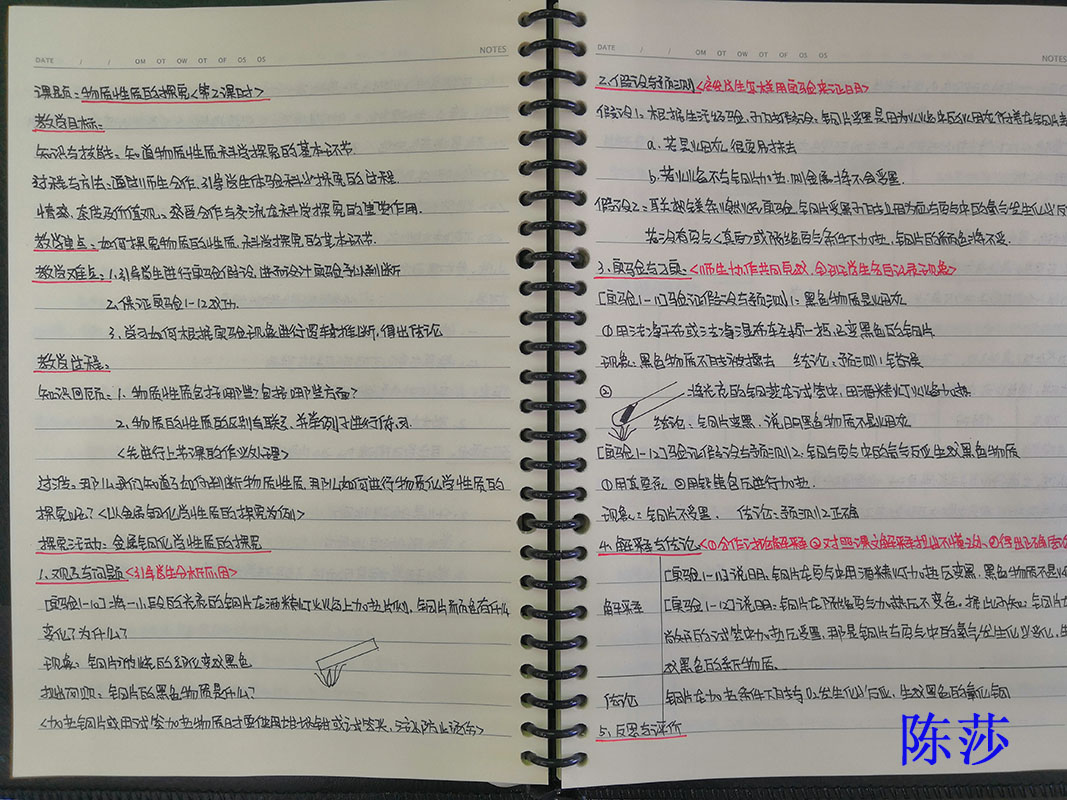 DATE / / OM OT OW OT OF OS OS NOTES
课题：物质性质的探究<第2课时>
教学目标：
知识与技能：知道物质性质科学探究的基本环节.
过程与方法：通过师生合作，引导学生体验科学探究的过程.
情感、态度及价值观：感受合作与交流在科学探究的重要作用.
教学重点：如何探究物质的性质，科学探究的基本环节.
教学难点：1.引导学生进行实验假设，进而设计实验予以判断
2.保证实验1-12成功.
3.学习如何根据实验现象进行逻辑推断，得出结论
教学过程：
知识回顾：1.物质性质包括哪些？包括哪些方面？
2.物质的性质的区别与联系，并举例子进行练习.
<先进行上节课的作业处理>
过渡：那么我们知道了如何判断物质性质，那么如何进行物质化学性质的
探究呢？<以金属铜化学性质的探究为例>
探究活动：金属铜化学性质的探究
1.观察与问题<引导学生分析应用>
[实验1-10]：将一小段的光亮的铜片在酒精灯火焰上加热片刻，铜片颜色有什么
变化？为什么？
现象：铜片被烧的红变成黑色
提出问题：铜片的黑色物质是什么？
<加热铜片或用试管加热物质时要使用坩埚钳或试管夹，以防止烫伤>
DATE / / OM OT OW OT OF OS OS NOTES
2.假设与预测<学生怎样用实验来证明>
假设1：根据生活经验，可提假设：铜片变黑是因为火焰中的炭黑附着在铜片表
a.若是炭黑，很容易抹去
b.若火焰不与铜片加热，则金属将不会变黑.
假设2：联想镁条燃烧实验，铜片变黑可能是因为与空气中的氧气发生化学反
若没有空气<真空>或隔绝空气条件下加热，铜片的颜色将不变.
3.实验与事实：<师生协作共同完成，分别学生各自记录现象>
[实验1-11]验证假设与预测1：黑色物质是炭黑
①用洁净干布或洁净湿布在擦一擦已变黑色的铜片
现象：黑色物质不能被擦去 结论：预测1错误
② 将光亮的铜装在试管中，用酒精灯火焰加热.
结论：铜片变黑，说明黑色物质不是炭黑
[实验1-12]验证假设与预测2：铜与空气中的氧气反应生成黑色物质
①用真空泵，②用铝箔包后进行加热.
现象：铜片不变黑， 结论：预测2正确
4.解释与结论<①合作讨论解释②对照课文解释提出不懂之处，③得出正确结论
[实验1-11]说明：铜片在空气中用酒精灯加热后变黑，黑色物质不是炭
解释 [实验1-12]说明：铜片在隔绝空气加热后不变色，据此可知：铜片在
敞开的试管中加热后变黑，那是铜片与空气中的氧气发生化学变化，生
成黑色的新物质.
结论 铜片在加热条件下能与O₂发生化学反应，生成黑色的氧化铜
5.反思与评价
陈莎